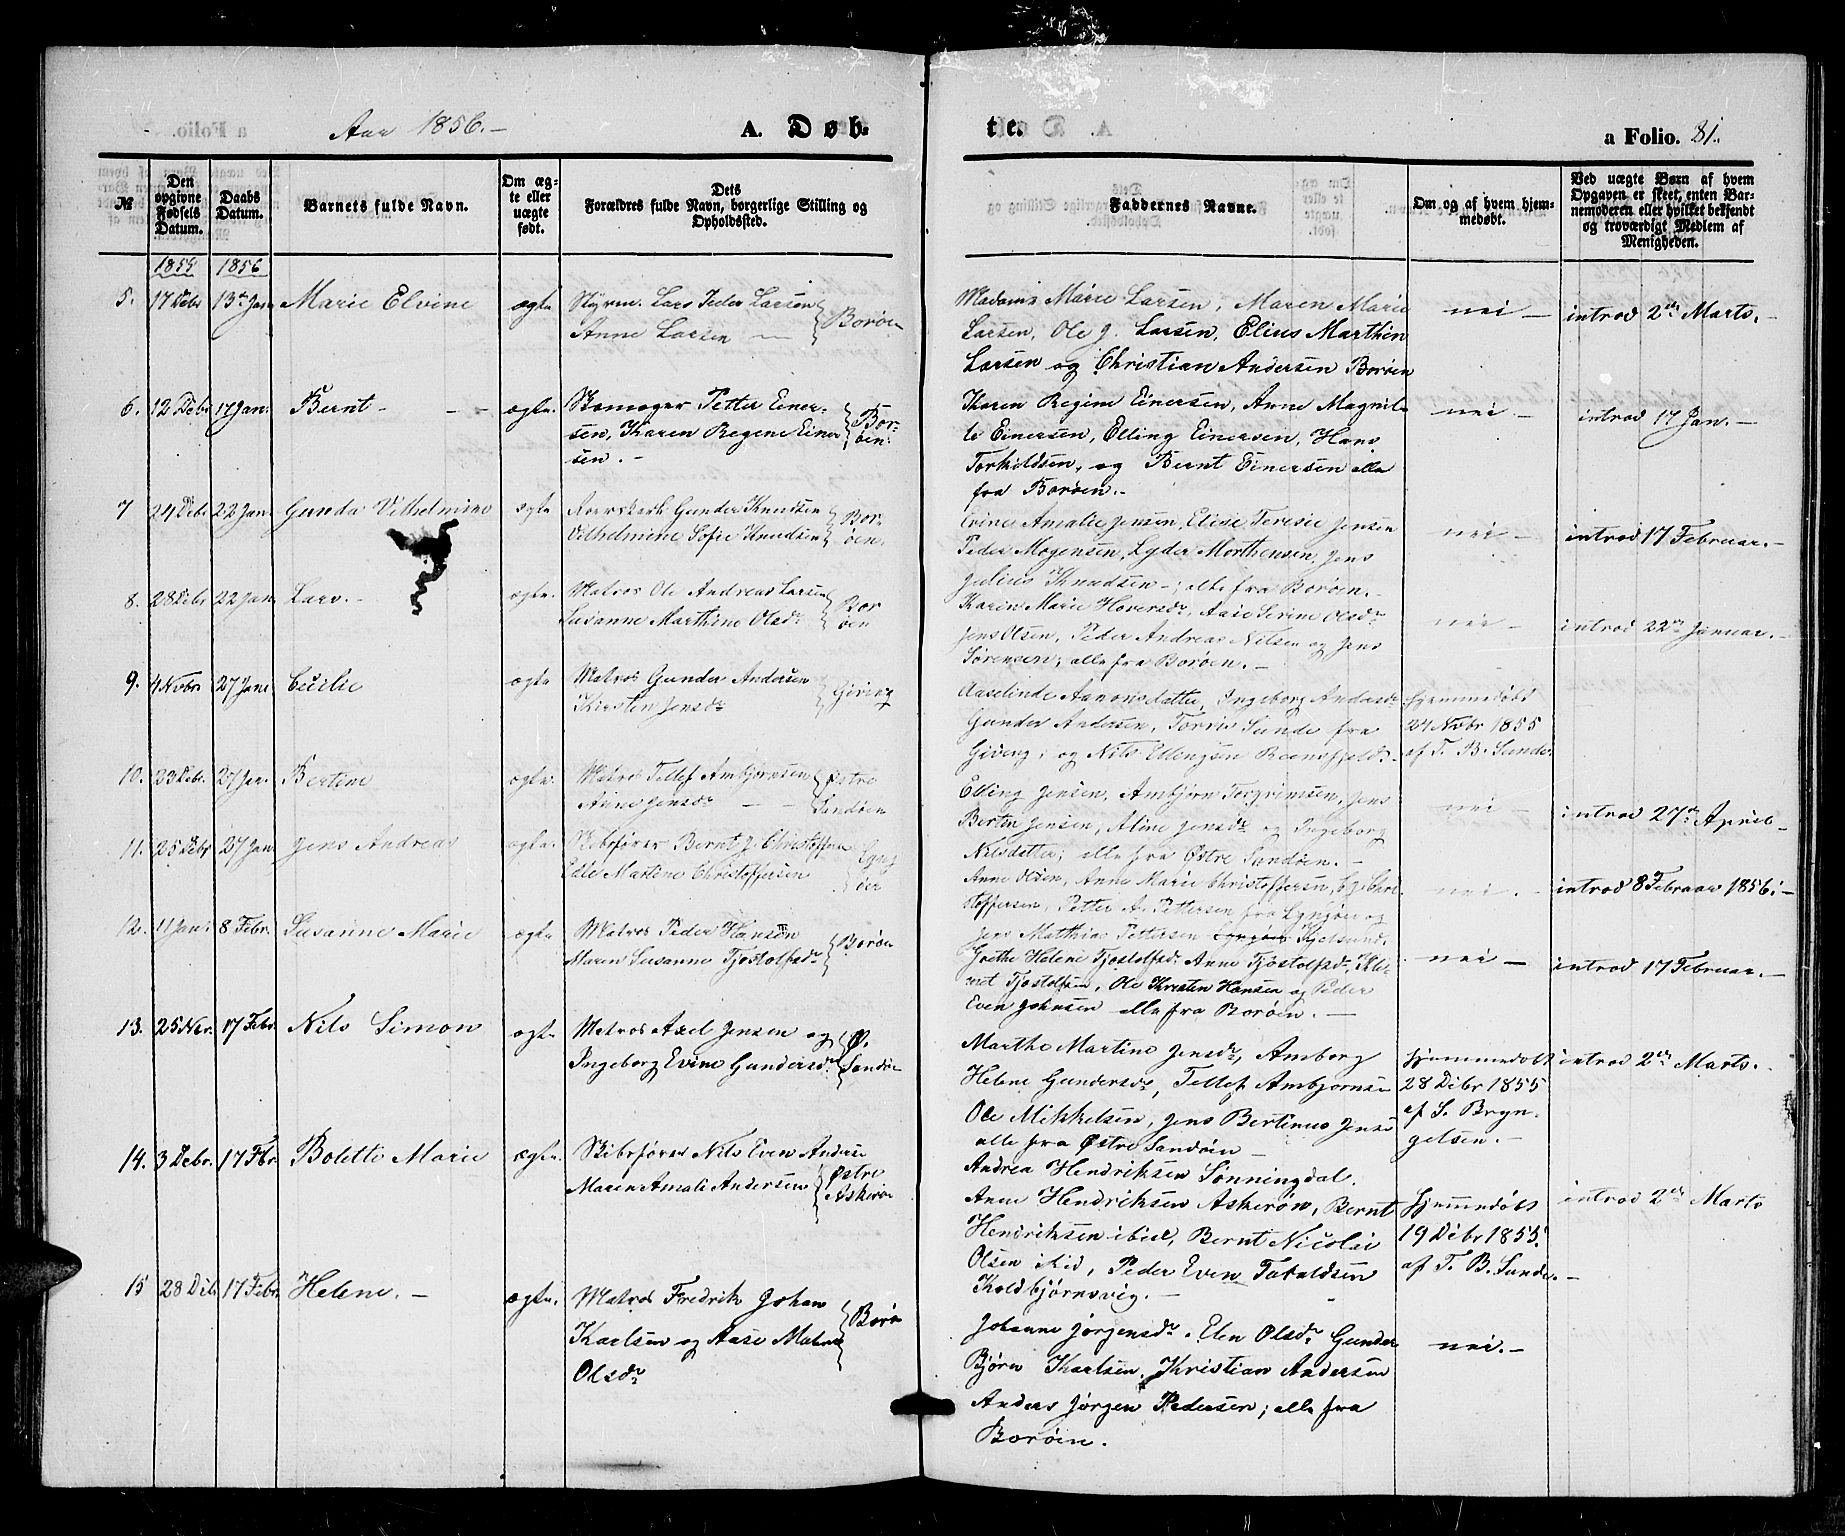 Aar 1856.-
A. Døb-
te.
a Folio. 81.
№
Den opgivne Fødsels Datum.
Daabs Datum.
Barnets fulde Navn.
Om ægte eller uægte født.
Dets Forældres fulde Navn, borgerlige Stilling og Opholdssted.
Faddernes Navne.
Om og af hvem hjemmedøbt.
Ved uægte Børn af hvem Opgaven er skeet, enten Barnemoderen eller hvilket bekjendt og troværdigt Medlem af Menigheden.
1855 1856
5. 17 Debr 13de Jan Marie Elvine ægte Styrm. Lars Peder Larsen
Anne Larsen — Borøen
Madame Marie Larsen, Maren Marie
Larsen, Ole J. Larsen, Elius Marthin
Larsen og Christian Andersen Borøen
nei — introd 2den Marts.-
6. 12 Debr 17 Jan. Bernt - - - ægte. Petter Einer-
sen, Karen Regine Einer
sen. - Bor-
øen.
Karen Regine Einersen, Anne Magnil-
le Einersen, Elling Einersen, Hans
Torkildsen, og Bernt Einersen alle
fra Borøen.-
nei — introd 17 Jan. —
7 24 Debr 22 Jan. Gunda Vilhelmine ægte Gunder Knudsen
Vilhelmine Sofie Knudsen Bor-
øen.
Evine Amalie Jensen, Elise Teresie Jensen
Peder Mogensen, Lyder Morthensen, Jens
Julius Knudsen -; alle fra Borøen.
nei — introd 17 Februar.-
8. 28 Debr 22 Jan Lars.- ægte. Matros Ole Andreas Larsen
Susanne Marthine Olsdr Bor
øen
Karen Marie Haversdr, Aase Serine Olsdr
Jens Olsen, Peder Andreas Nilsen og Jens
Sørensen; alle fra Borøen.-
nei — introd 22de Januar.-
9. 4 Nobr 27 Jan Cecilie ægte Matros Gunder Andersen
Kirsten Jensdr Giving
Aaselinde Aanonsdatter, Ingeborg Andersdr
Gunder Andersen, Torris Sunde fra
Giveng; og Nils Ellengsen
Hjemmedøbt
24 Nobr 1855
af T. B. Sunde.
10. 23 Debr. 27 Jan. Bertine ægte. Matros Tellef Ambjørnsen
Anne Jensdr — — Østre
Sandøen
Elling Jensen, Ambjørn Tergrimsen, Jens
Bertin Jensen, Aline Jensdr og Ingeborg
Nilsdatter; alle fra Østre Sandøen.-
nei — introd 27de April-
11. 25 Debr 27 Jan Jens Andreas ægte. Skibsfører Bernt J. Christoffersen
Edle Martine Christoffersen Lyng
ør
Anne Olsen, Anne Marie Christoffersen, C. J. Chri-
stoffersen, Petter A. Pettersen fra Lyngøer og
Jens Matthias Pettersen Kjelsund.
nei. - introd 8 Februar 1856.-
12. 11 Jan. 8 Febr. Susanne Marie ægte Matros Peder Hansen
Maren Susanne Tjostolfsdr Borøen
Grethe Helene Tjostolfsdr Anne Tjostolfsdr,
Tjostolfsen, Ole Kristen Hansen og Peder
Even Johnsen alle fra Borøen. —
nei — introd 17 Februar.-
13. 25 Nor. 17 Febr. Nils Simon ægte. Matros Axel Jensen og
Ingeborg Evine Gundersdr Ø.
Sandøe
Marthe Martine Jensdr, Amborg
Helene Gundersdr, Tellef Ambjørnsen
Ole Mikkelsen, Jens Bertinus Jensen
alle fra Østre Sandøen —
Hjemmedøbt
28 Debr 1855
af S. Bryn-
gelsen.-
introd 2den Marts.-
14. 3 Debr. 17 Fbr. Bolette Marie ægte. Skibsfører Nils Even Anderse
Maren Amalie Andersen Østre
Askerøe
Andrea Hendriksen Sønningdal.
Anne Hendriksen Askerøn, Bernt
Hendriksen ibid, Bernt Nicolai
Olsen Kid, Peder Even Taraldsen
Koldbjørnsvig.-
Hjemmedøbt
19 Debr 1855.
af T. B. Sunde.-
introd 2den Marts
15 28 Deb. 17 Febr. Helene. - ægte. Matros Fredrik Johan
Karlsen og Aase Malene
Olsdr Borøe
Johanne Jørgensdr. Elen Olsdr Gunder
Bjørn Karlsen, Kristian Andersen
Anders Jørgen Pedersen; alle fra
Borøen.
nei.-